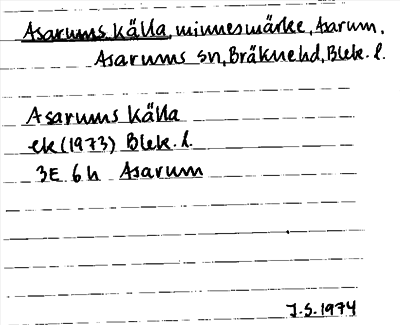 Asarums källa, minnesmärke, Asarum,
Asarums sn, Bräkne hd, Blek. l.
Asarums Källa
ek (1973) Blek. l.
3E 6h Asarum
J.S. 1974